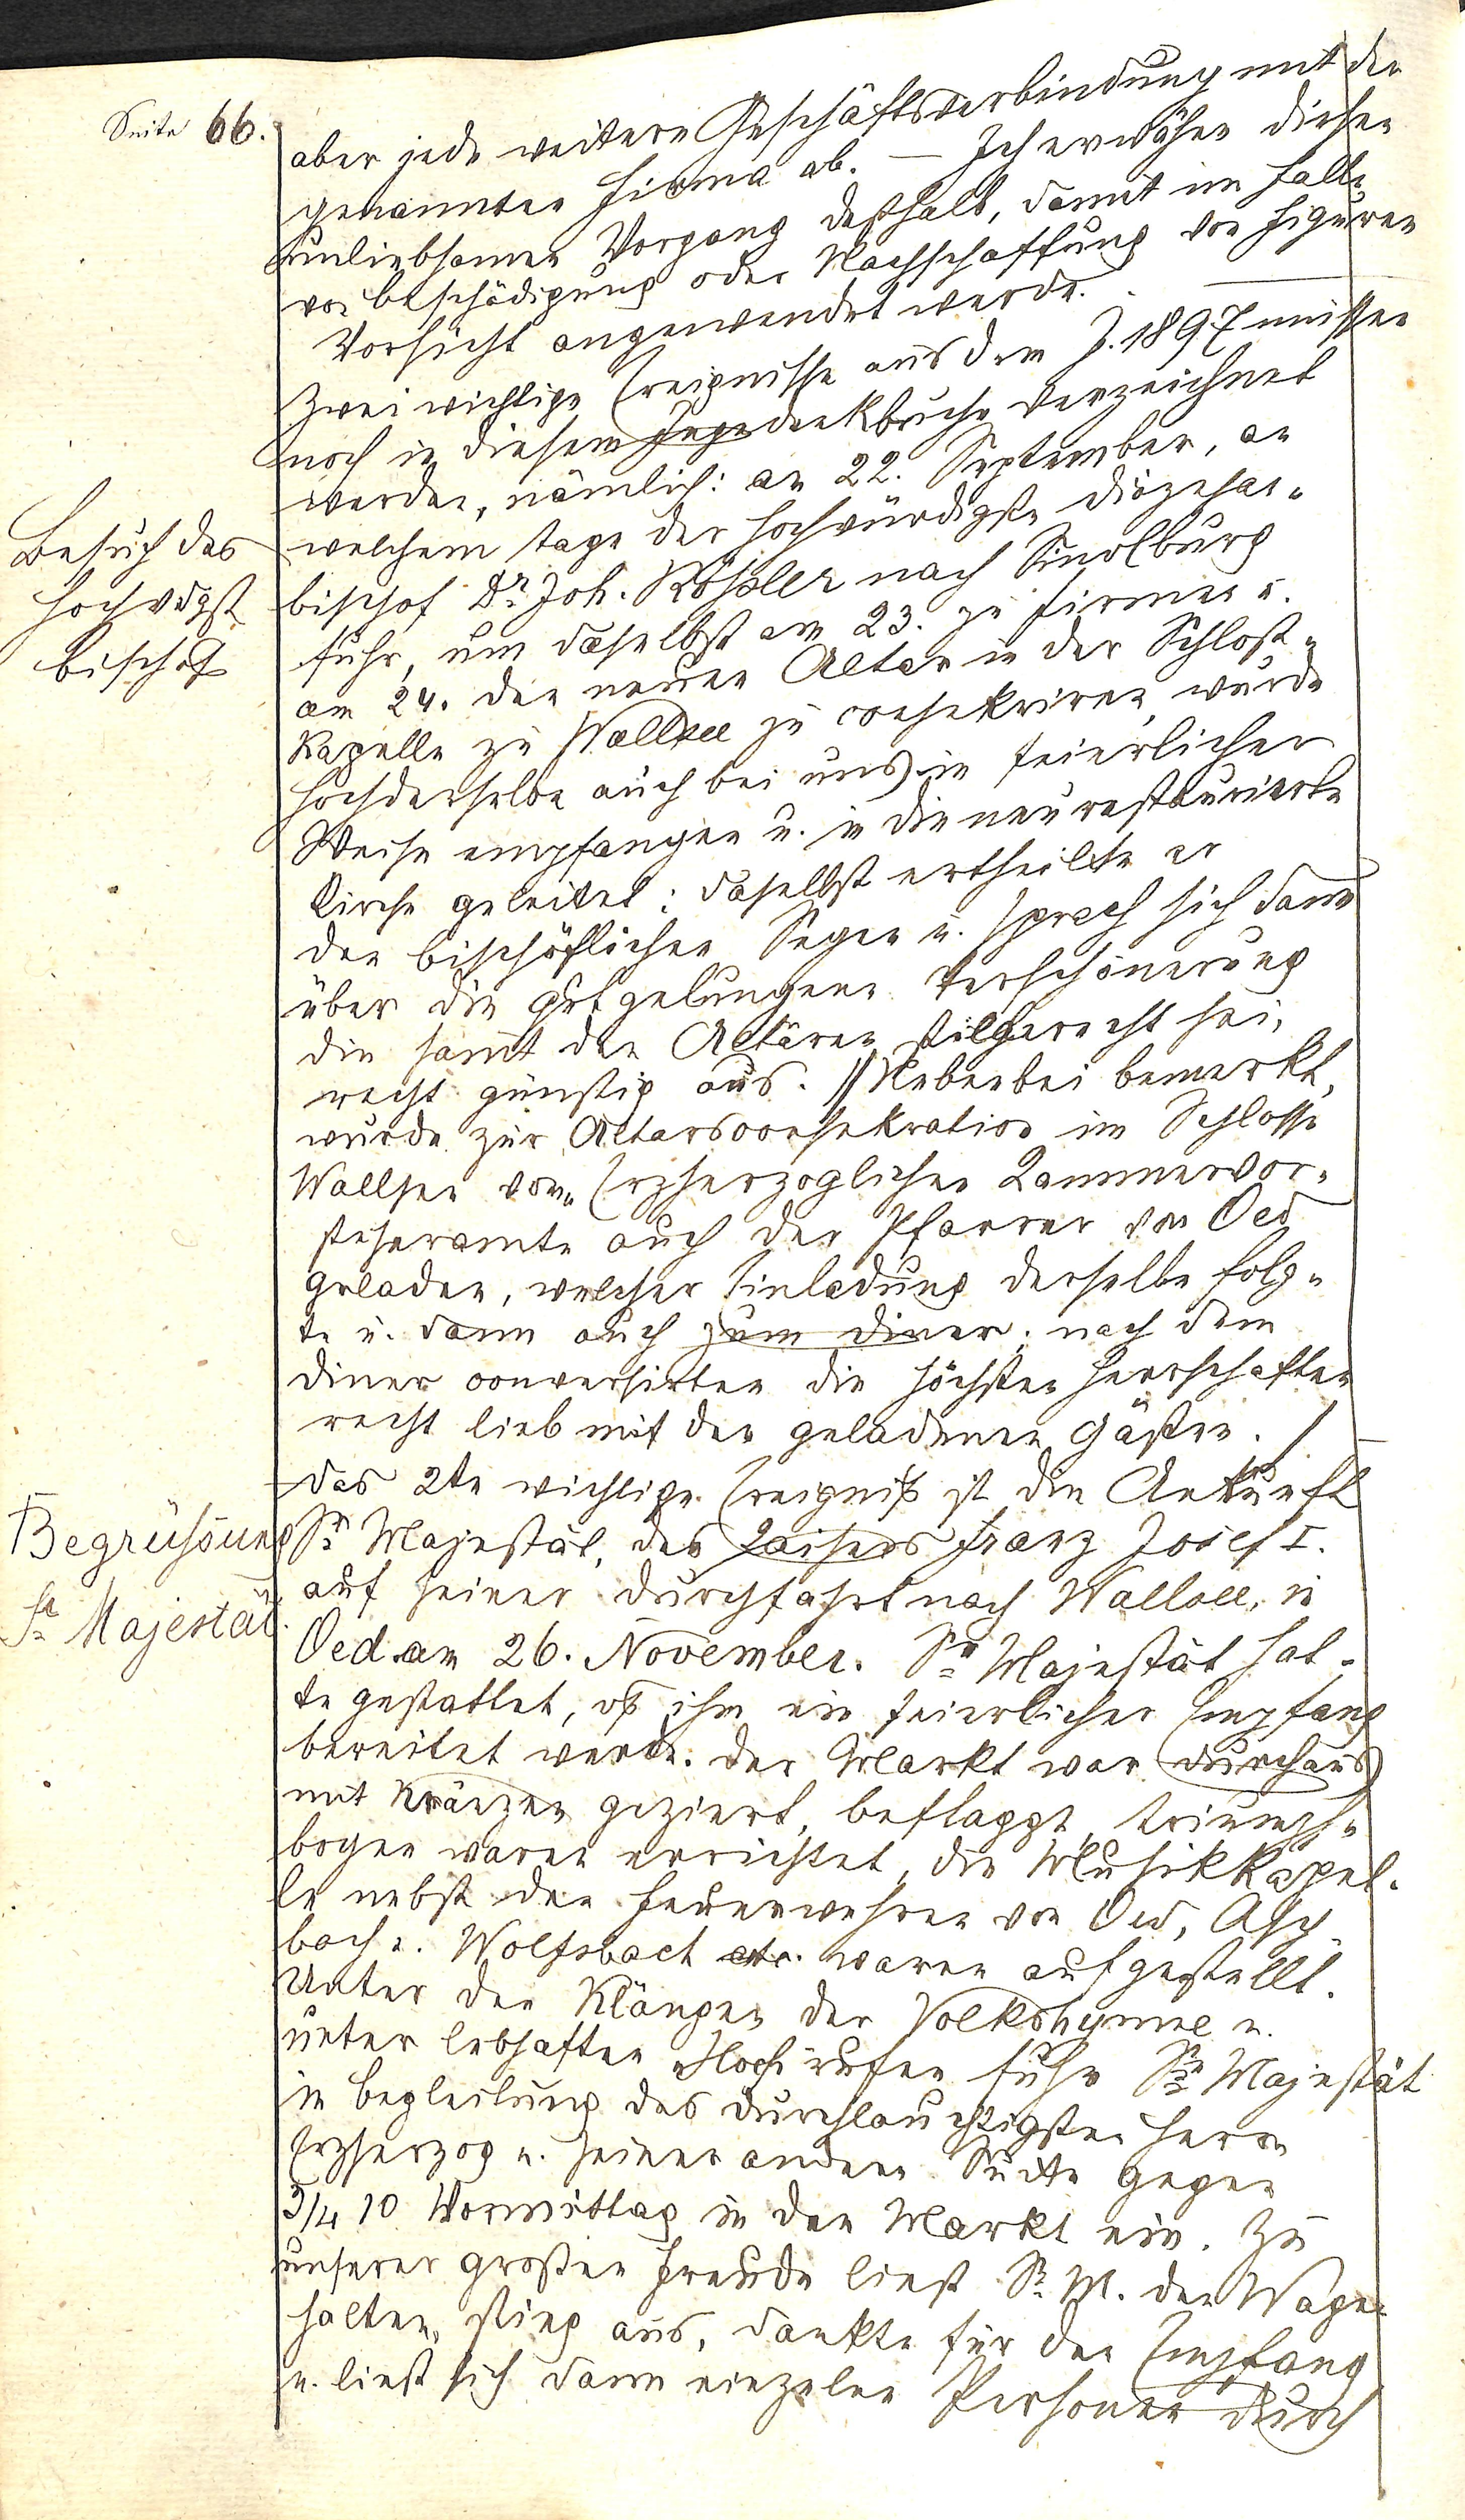 Seite 66.
aber jede weitere Geschäftsverbindung mit der
genannten Firma ab. — Ich erwähne diesen
unliebsamen Vorgang deßhalb, damit im Falle
von Beschädigung oder Nachschaffung von Figuren
Vorsicht angewendet werde. —
Zwei wichtige Ereignisse aus dem J. 1897 müssen
noch in diesem Gedenkbuche verzeichnet
werden, nämlich: am 22. September, an
welchem Tage der hochwürdigste Diözesan-
bischof Dr. Joh. Rößler nach Sindlburg
fuhr, um daselbst am 23. zu firmen u.
am 24. den neuen Altar in der Schloß-
kapelle zu Wallsee zu consekriren, wurde
Hochderselbe auch bei uns in feierlicher
Weise empfangen u. in die neu restaurierte
Kirche geleitet; daselbst ertheilte er
den bischöflichen Segen u. sprach sich dann
über die gut gelungene Verschönerung
die samt den Altären stilgerecht sei,
recht günstig aus. // Nebenbei bemerkt,
wurde zur Altarsconsekration im Schlosse
Wallsee vom Erzherzoglichen Kammervor-
steheramte auch der Pfarrer von Oed
geladen, welcher Einladung derselbe folg-
te u. dann auch zum Diner; nach dem
Diner conversirten die höchsten Herrschaften
recht lieb mit den geladenen Gästen. /
Das 2te wichtige Ereigniß ist die Ankunft
Sr. Majestät, des Kaisers Franz Josef I.
auf seiner Durchfahrt nach Wallsee, in
Oed am 26. November. Se. Majestät hat-
te gestattet, daß ihm ein feierlicher Empfang
bereitet werde. Der Markt war durchaus
mit Kränzen geziert, beflaggt, Triumph-
bogen waren errichtet, die Musikkapel-
le nebst den Feuerwehren von Oed, Asch-
bach u. Wolfsbach etc. waren aufgestellt.
Unter den Klängen der Volkshymne u.
unter lebhaften Hochrufen fuhr Se. Majestät
in Begleitung des durchlauchtigsten Herrn
Erzherzog u. seiner anderen Suite gegen
3/4 10 Vormittag in den Markt ein. Zu
unserer großen Freude ließ Se. M. den Wagen
halten, stieg aus, dankte für den Empfang
u. ließ sich dann einzelne Personen durch
Besuch des
hochwdgst.
Bischofs
Begrüßung
Sr. Majestät.